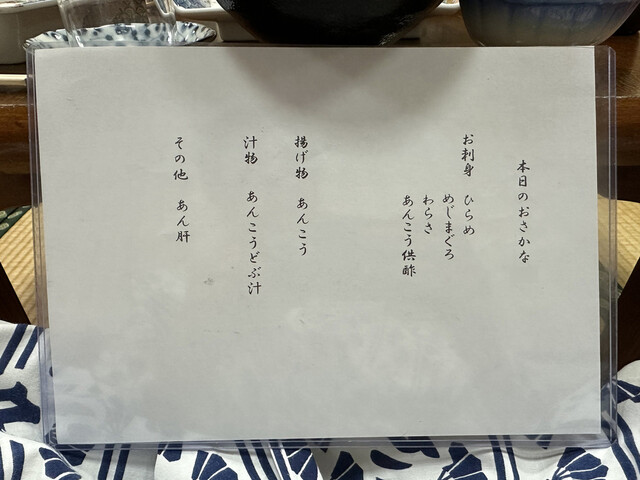 本日のおさかな
お刺身　ひらめ
めじまぐろ
わらさ
あんこう供酢
揚げ物　あんこう
汁物　あんこうどぶ汁
その他　あん肝